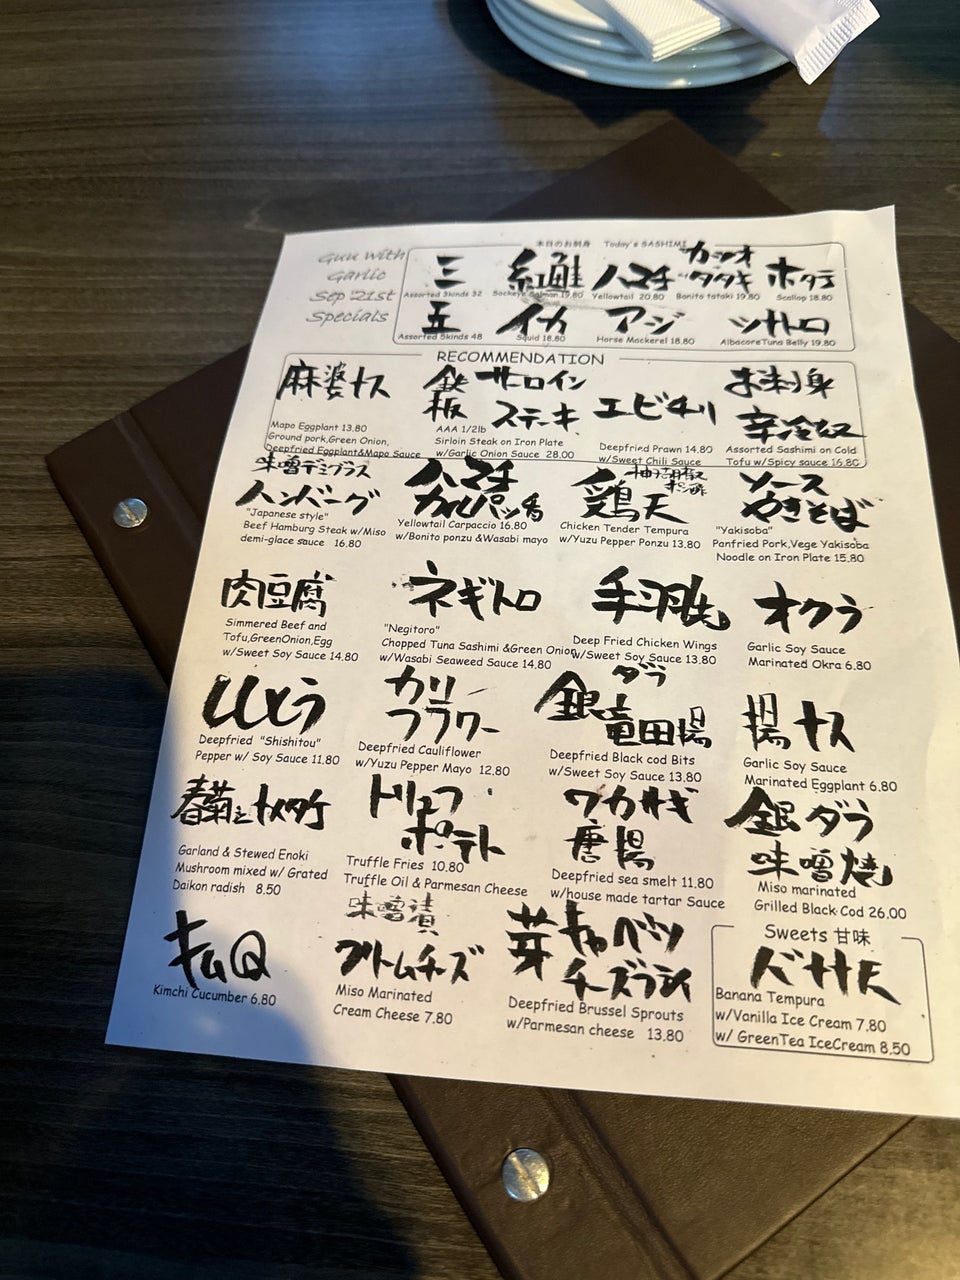 Guu with
Garlic
Sep '21st
Specials
本日のお刺身 Today's SASHIMI
三
Assorted 3kinds 32
紅鮭
Sockeye Salmon 19.80
ハマチ
Yellowtail 20.80
カツオ
タタキ
Bonito tataki 19.80
ホタテ
Scallop 18.80
五
Assorted 5kinds 48
イカ
Squid 18.80
アジ
Horse Mackerel 18.80
ツナトロ
AlbacoreTuna Belly 19.80
RECOMMENDATION
麻婆ナス
Mapo Eggplant 13.80
Ground pork,Green Onion,
Deepfried Eggplant&Mapo Sauce
鉄板 サーロイン
ステーキ
AAA 1/2lb
Sirloin Steak on Iron Plate
w/Garlic Onion Sauce 28.00
エビチリ
Deepfried Prawn 14.80
w/Sweet Chili Sauce
お刺身
辛冷奴
Assorted Sashimi on Cold
Tofu w/Spicy sauce 16.80
味噌デミグラス
ハンバーグ
"Japanese style"
Beef Hamburg Steak w/Miso
demi-glace sauce 16.80
ハマチ
カルパッチョ
Yellowtail Carpaccio 16.80
w/Bonito ponzu &Wasabi mayo
柚子胡椒
ポン酢
鶏天
Chicken Tender Tempura
w/Yuzu Pepper Ponzu 13.80
ソース
やきそば
"Yakisoba"
Panfried Pork,Vege Yakisoba
Noodle on Iron Plate 15.80
肉豆腐
Simmered Beef and
Tofu,GreenOnion,Egg
w/Sweet Soy Sauce 14.80
ネギトロ
"Negitoro"
Chopped Tuna Sashimi &Green Onion
w/Wasabi Seaweed Sauce 14.80
手羽先
Deep Fried Chicken Wings
w/Sweet Soy Sauce 13.80
オクラ
Garlic Soy Sauce
Marinated Okra 6.80
ししとう
Deepfried "Shishitou"
Pepper w/ Soy Sauce 11.80
カリ
フラワー
Deepfried Cauliflower
w/Yuzu Pepper Mayo 12.80
銀ダラ
竜田揚
Deepfried Black cod Bits
w/Sweet Soy Sauce 13.80
揚ナス
Garlic Soy Sauce
Marinated Eggplant 6.80
春菊とナメタケ
Garland & Stewed Enoki
Mushroom mixed w/ Grated
Daikon radish 8.50
トリュフ
ポテト
Truffle Fries 10.80
Truffle Oil & Parmesan Cheese
ワカサギ
唐揚
Deepfried sea smelt 11.80
w/house made tartar Sauce
銀ダラ
味噌焼
Miso marinated
Grilled Black Cod 26.00
キムQ
Kimchi Cucumber 6.80
味噌漬
クリームチーズ
Miso Marinated
Cream Cheese 7.80
芽キャベツ
チーズフライ
Deepfried Brussel Sprouts
w/Parmesan cheese 13.80
Sweets 甘味
バナナ天
Banana Tempura
w/Vanilla Ice Cream 7.80
w/ GreenTea IceCream 8.50